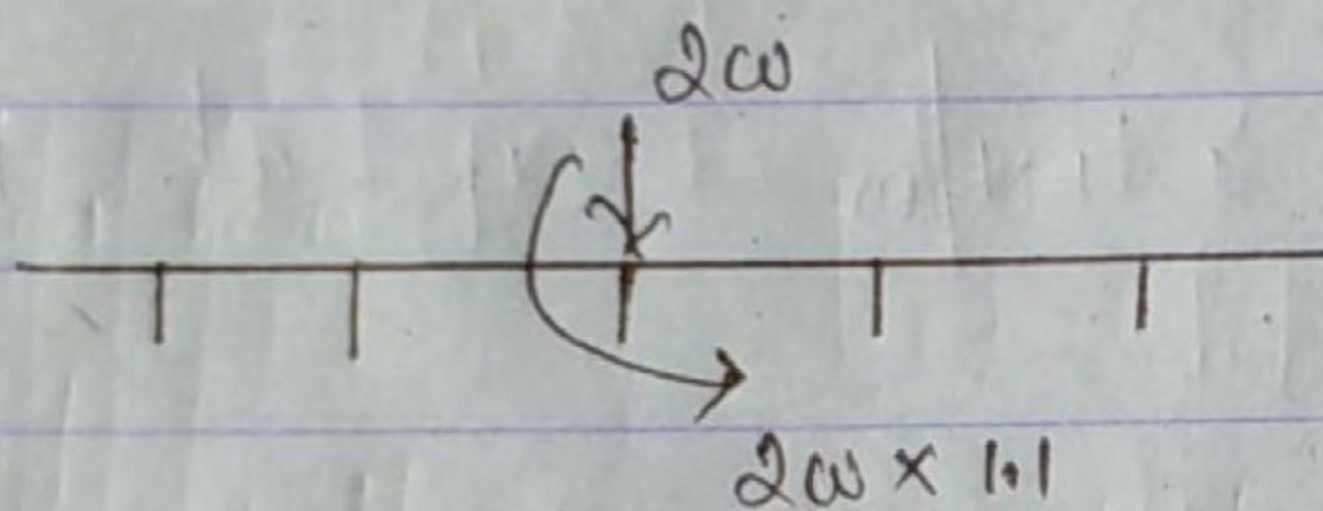 2ω
2ω × 1.1